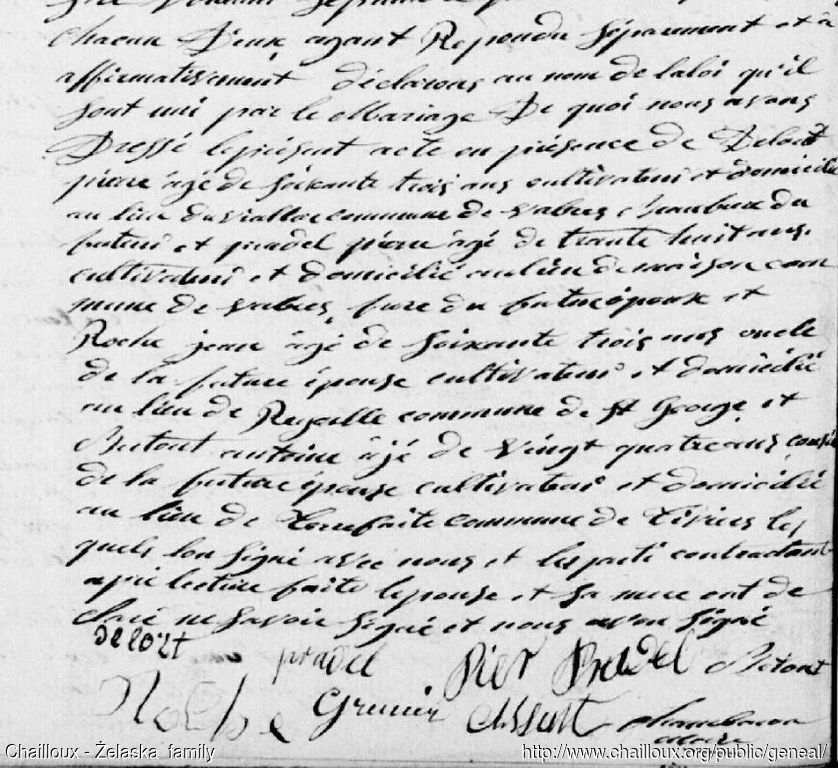 chacun d'eux ayant Repondu séparement et à
affirmativement déclarons au nom de la loi qu'il
sont uni par le Mariage De quoi nous avons
Dressé le présent acte en présence de Delort
pierre agé de soixante trois ans cultivateur et domicilié
au lieu du commune de vabres du
futeur et pradel pierre âgé de trante huit ans
cultivateur et domicilié au lieu de maison com
mune de vabres frere du futur épouse et
Roche jean âgé de soixante trois ans oncle
de la future épouse cultivateur et domicilié
au lieu de commune de St George et
antoine âjé de vingt quatre ans cousin
de la future épouse cultivateur et domicilié
au lieu de commune de Tiviers les
quels l'on signé avec nous et les parti contractant
apré lecture faite l'epouse et sa mere ont de
claré ne savoir signé et nous avon signé
delort pradel Pier Pradel
Roche Grenier
Chailloux - Żelaska family http://www.chailloux.org/public/geneal/